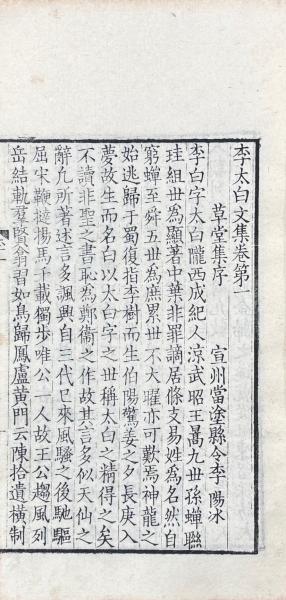 李太白文集卷第一
草堂集序
宣州當塗縣令李陽冰
李白字太白隴西成紀人涼武昭王暠九世孫蟬聯
珪組世為顯著中葉非罪謫居條支易姓為名然自
窮蟬至舜五世為庶累世不大曜亦可歎焉神龍之
始逃歸于蜀復指李樹而生伯陽驚姜之夕長庚入
夢故生而名白以太白字之世稱太白之精得之矣
不讀非聖之書恥為鄭衞之作故其言多似天仙之
辭凡所著述言多諷興自三代已來風騷之後馳驅
屈宋鞭撻揚馬千載獨步唯公一人故王公趨風列
岳結軌羣賢翕習如鳥歸鳳盧黃門云陳拾遺橫制